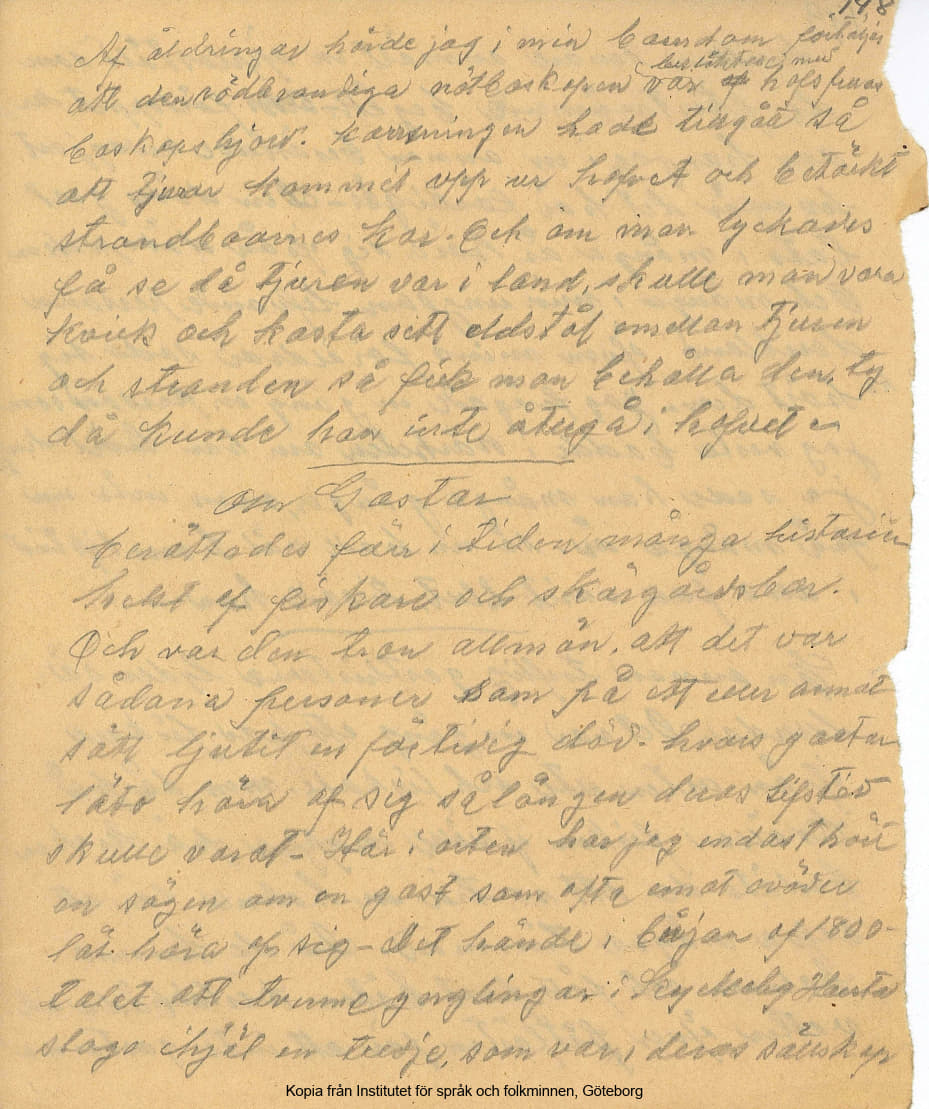 148
Af åldringar hörde jag i min barndom förtäljas
(besläktad med
att den rödbrandiga nötboskapen var af hafsfruns
boskapshjord. Korsningen hade tillgått så
att tjurar kommit upp ur hafvet och betäckt
strandboarnes kor. Och om man lyckades
få se då tjuren var i land, skulle man vara
kvick och kasta sitt eldstål emellan tjuren
och stranden så fick man behålla den, ty
då kunde han inte återgå i hafvet
om Gastar
berättades förr i tiden många historier
helst af fiskare och skärgårdsbor.
Och var den tron allmän, att det var
sådana personer som på ett eller annat
sätt ljutit en förtidig död. hvars gastar
läto höra af sig sålängen deras lifstid
skulle varat – Här i orten har jeg endast hört
en sägen om en gast som ofta emot oväder
lät höra af sig – Det hände i början af 1800-
talet att tvenne ynglingar i
slogo ihjäl en tredje, som var i deras sällskap
Kopia från Institutet för språk och folkminnen, Göteborg